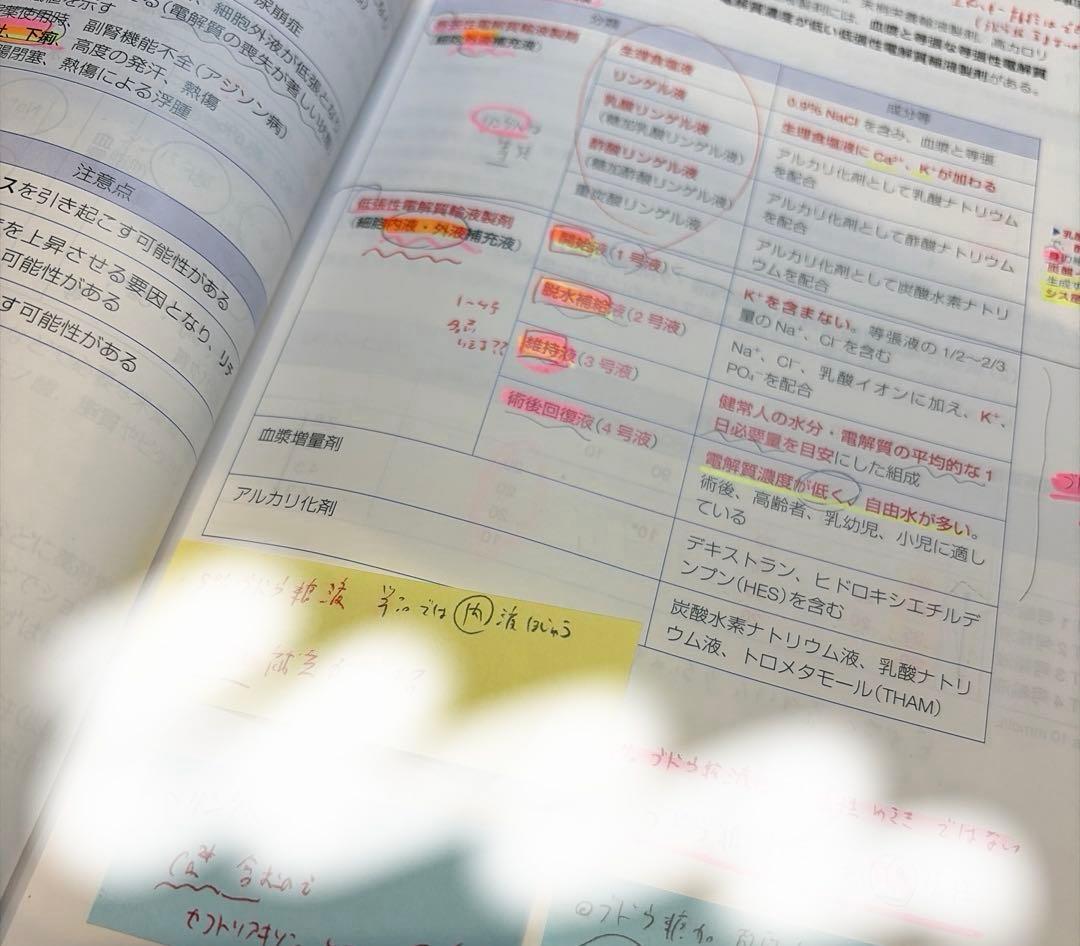 尿崩症
細胞外液が低張となる
(電解質の喪失が著しい状態
薬使用時、副腎機能不全(アジソン病)
下痢、高度の発汗、熱傷
腸閉塞、熱傷による浮腫
注意点
スを引き起こす可能性がある
を上昇させる要因となり、
可能性がある
す可能性がある
血漿と等張な等張性電解質
電解質濃度が低い低張性電解質輸液製剤がある。
分類
成分等
等張性電解質輸液製剤
(細胞外液補充液)
生理食塩液
0.9% NaCl を含み、血漿と等張
リンゲル液
生理食塩液に Ca²⁺、K⁺が加わる
乳酸リンゲル液
(糖加乳酸リンゲル液)
アルカリ化剤として乳酸ナトリウム
を配合
酢酸リンゲル液
(糖加酢酸リンゲル液)
アルカリ化剤として酢酸ナトリウム
を配合
重炭酸リンゲル液
アルカリ化剤として炭酸水素ナトリ
ウムを配合
低張性電解質輸液製剤
(細胞内液・外液補充液)
開始液(1号液)
K⁺を含まない。等張液の1/2〜2/3
量の Na⁺、Cl⁻を含む
脱水補給液(2号液)
Na⁺、Cl⁻、乳酸イオンに加え、K⁺、
PO₄⁻を配合
維持液(3号液)
健常人の水分・電解質の平均的な1
日必要量を目安にした組成
術後回復液(4号液)
電解質濃度が低く、自由水が多い。
術後、高齢者、乳幼児、小児に適し
ている
1〜4号
血漿増量剤
デキストラン、ヒドロキシエチルデ
ンプン(HES)を含む
アルカリ化剤
炭酸水素ナトリウム液、乳酸ナトリ
ウム液、トロメタモール(THAM)
ブドウ糖液 では 内 液ほじゅう
ブドウ糖液
ではない
Ca²⁺ 含むので
セフトリアキソン
ブドウ糖加